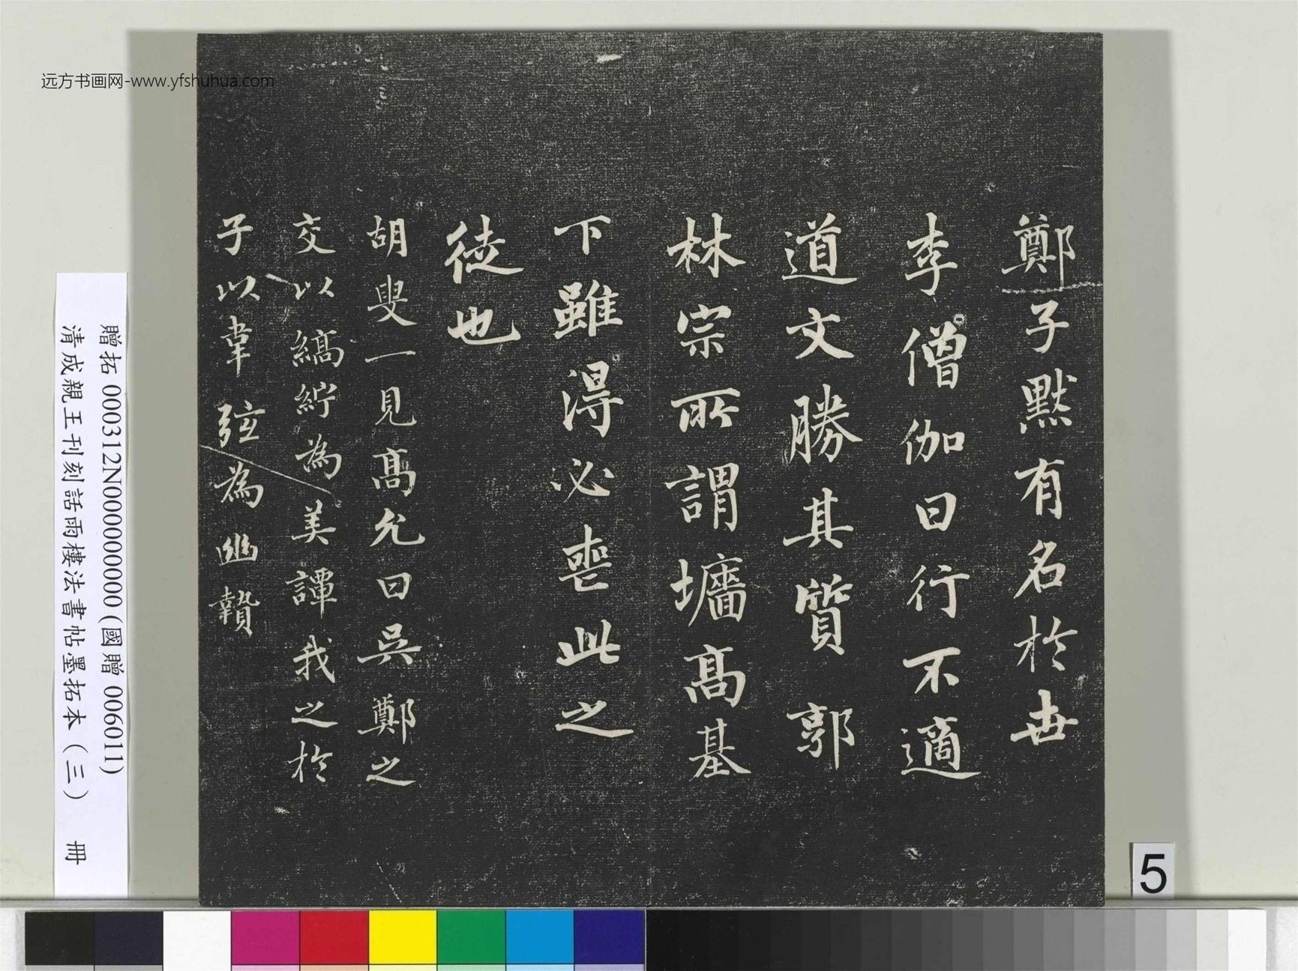 远方书画网-www.yfshuhua.com
鄭子默有名於世
李僧伽曰行不適
道文勝其質 郭
林宗所謂墻高基
下雖得必喪此之
徒也
胡叟一見高允曰吳鄭之
交以縞紵為美譚我之於
子以韋弦為幽贄
贈拓 000312N000000000 (國贈 006011)
清成親王刊刻話雨樓法書帖墨拓本（三） 冊
5